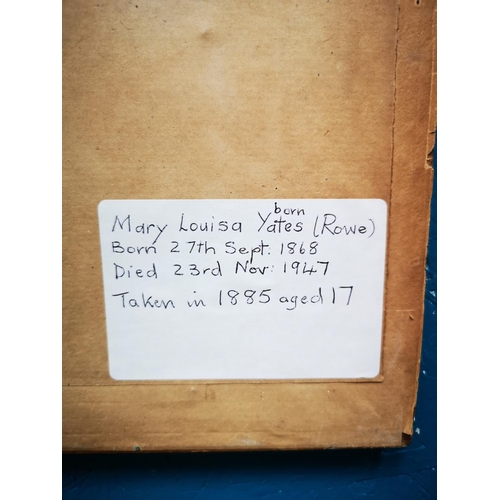 born
Mary Louisa Yates (Rowe)
Born 27th Sept. 1868
Died 23rd Nov: 1947
Taken in 1885 aged 17